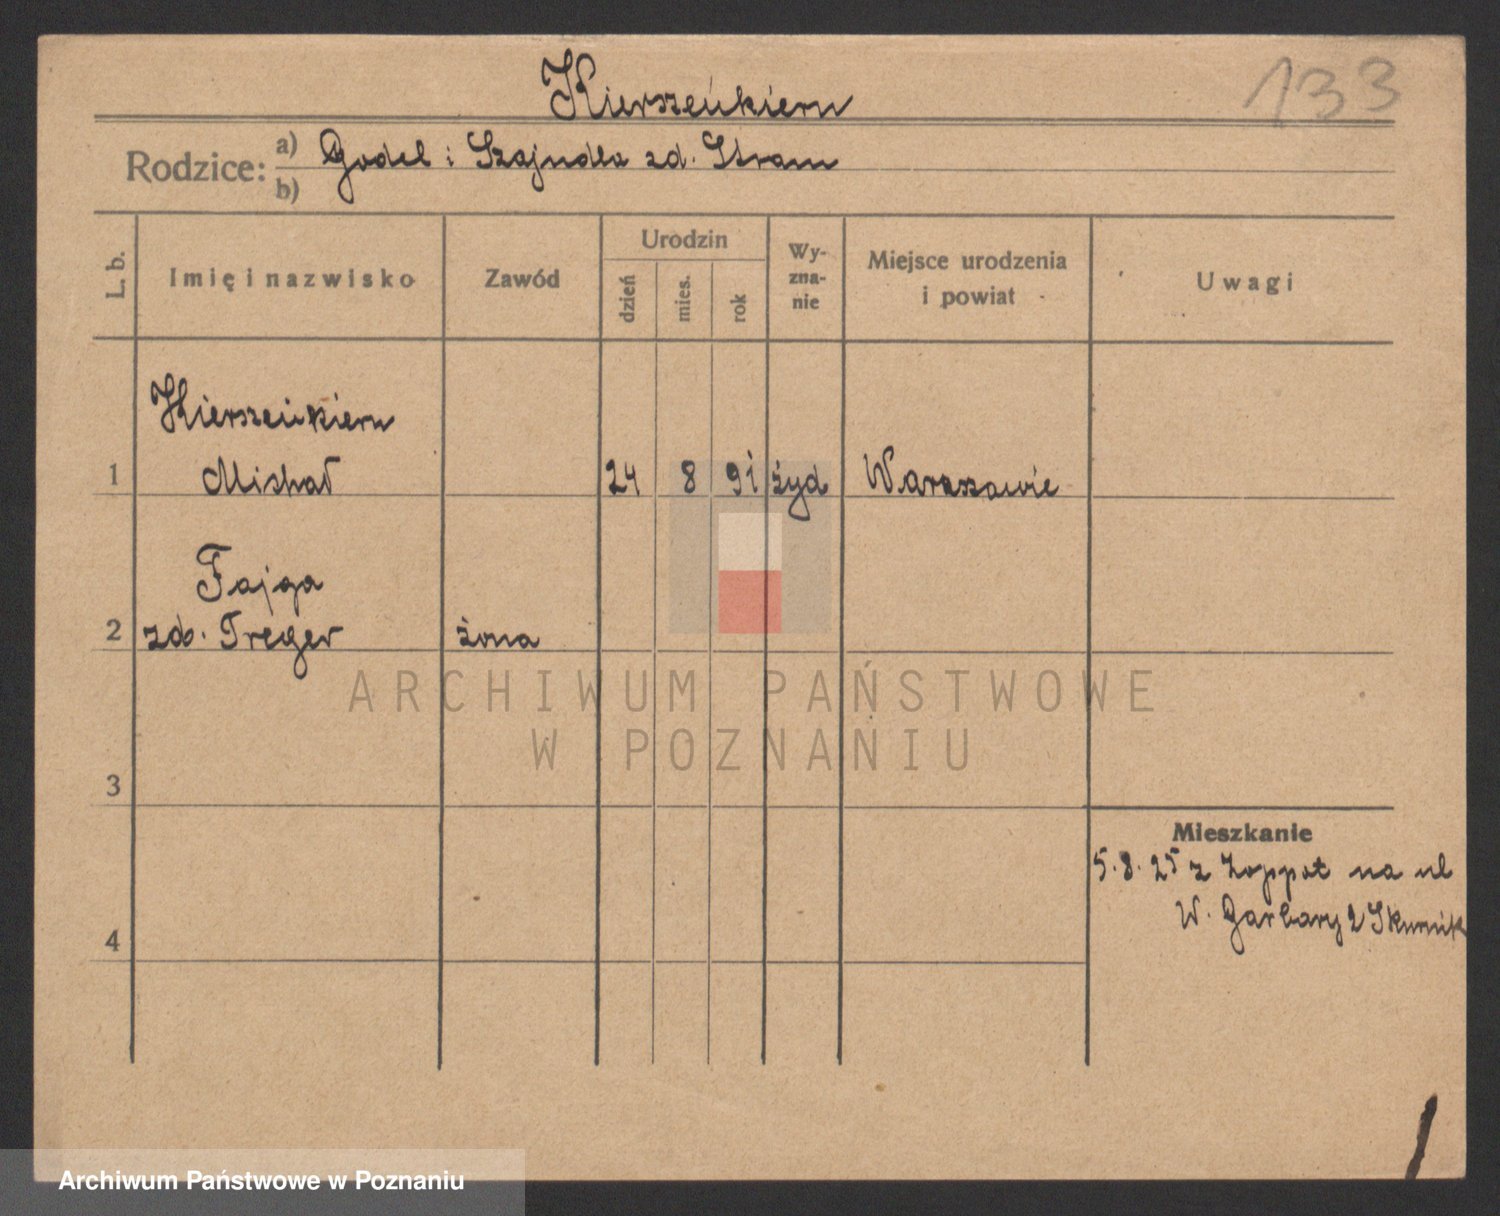 Kierszeńkiern
133
Rodzice: a) Godel i Szajndla zd. Stram
b)
L. b.
Imię i nazwisko
Zawód
Urodzin
dzień
mies.
rok
Wy-
zna-
nie
Miejsce urodzenia
i powiat
Uwagi
Kierszeńkiern
1 Michał 24 8 91 żyd Warszawie
Fajga
2 zd. Treger żona
ARCHIWUM PAŃSTWOWE
W POZNANIU
3
Mieszkanie
5.8.25 z Zoppot na ul
W. Garbary 2 Skurnik
4
Archiwum Państwowe w Poznaniu